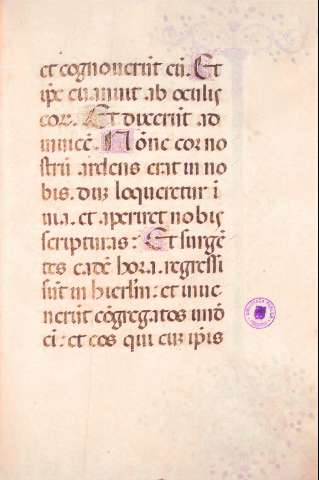 et cognouerūt eū. Et
ip̄e euanuit ab oculis
eoꝝ. Et dixerūt ad
inuicē. Nōne cor no
strū ardens erat in no
bis. dūz loqueretur ī
uia. et aperiret nobis
scripturas: Et surgē
tes eadē hora. regressi
sūt in hierl̄m: et inue
nerūt cōgregatos undē
cī: et eos qui cuz ip̄is